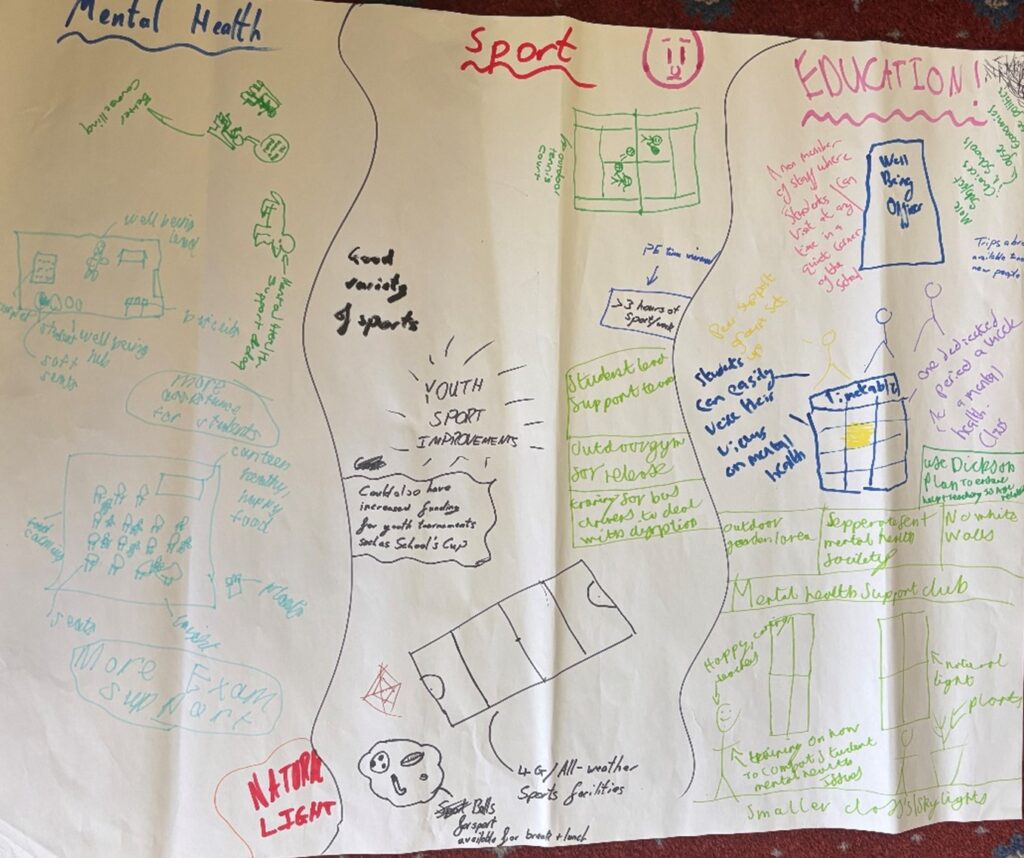 Mental Health
Better
Counselling
Mental Health
Support dog
well being
student well being
hub
soft
seats
more
for students
canteen
healthy,
happy
food
Food
Plants
seats
More Exam
support
NATURAL
LIGHT
Sport
outdoor
tennis
court
Good
variety
of sports
PE time
>3 hours of
sport/week
YOUTH
SPORT
IMPROVEMENTS
Could also have
increased funding
for youth tournaments
such as School's Cup
Student lead
support team
Outdoor gym
for release
for bus
drivers to deal
with
4G/All-weather
Sports facilities
Balls
for sport
available for break + lunch
EDUCATION!
A non member
of staff where
students can
visit at any
time in a
quiet corner
of the school
Well
Being
Officer
More
subject
choices
in schools
Economics
politics
Trips
available
new people
Peer support
group set
up
Students
can easily
voice their
views
on mental
health
Timetable
one dedicated
period a week
mental
health
class
use Dickson
Plan to
outdoor
garden/area
mental health
facility
No white
walls
Mental health support club
Happy, caring
teachers
natural
light
plants
training on how
to combat student
mental health
issues
Smaller class's/skylights